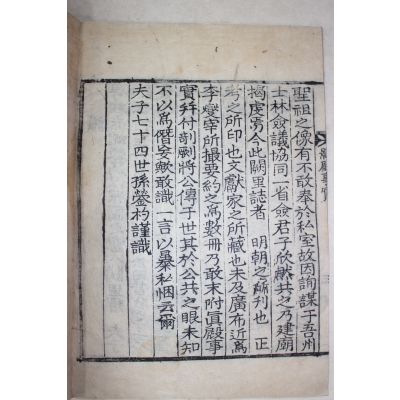 聖祖之像有不敢奉於私室故因詢謀于吾州
士林僉議協同一省僉君子欣然共之乃建廟
揭虔焉今此闕里誌者 明朝之所刊也 正
考之所印也文獻家之所藏也未及廣布近爲
李燮宰所撮要約之爲數冊乃敢末附眞殿事
實幷付剞劂將公傳于世其於公共之眼未知
不以爲僭妄歟敢識一言以暴私悃云爾
夫子七十四世孫 杓謹識
事實